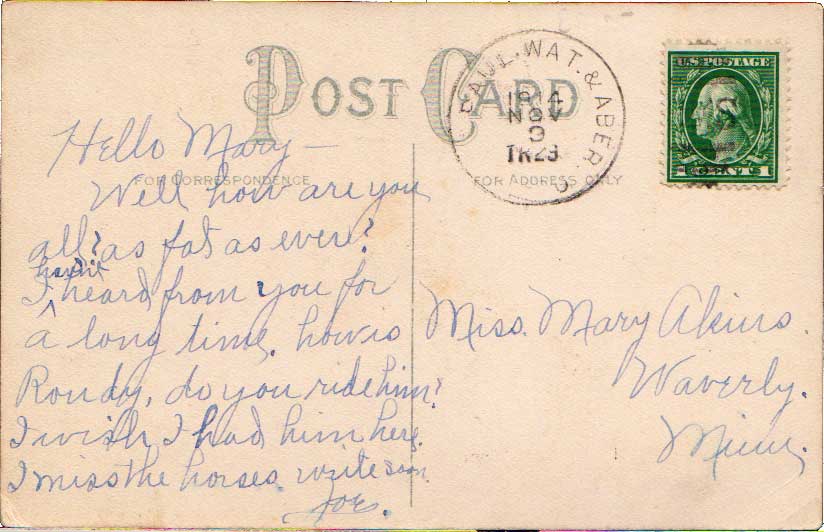 POST CARD
FOR CORRESPONDENCE
FOR ADDRESS ONLY
PAUL. WAT. & ABER
1914
NOV
9
TR29
U.S. POSTAGE
1 CENT 1
Hello Mary –
Well how are you
all? as fat as evere?
havnt
I ^ heard from you for
a long time. how is
Roudy, do you ride him?
I wish I had him here.
I miss the horses. write soon
Joe.
Miss. Mary Akins.
Waverly.
Minn.